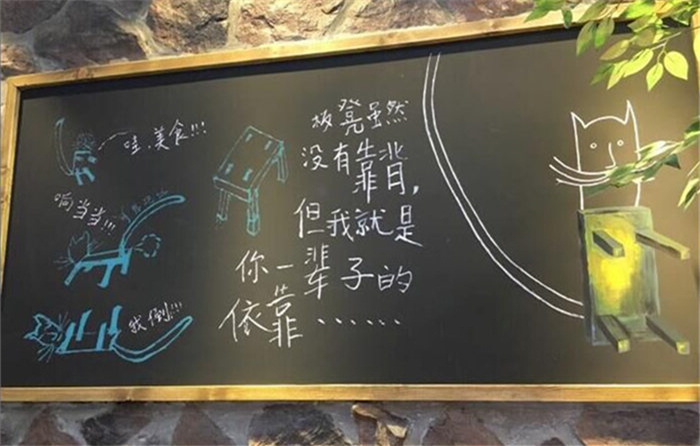 哇、美食!!!
响当当!!!
我倒!!!
板凳虽然
没有靠背，
但我就是
你一辈子的
依靠……